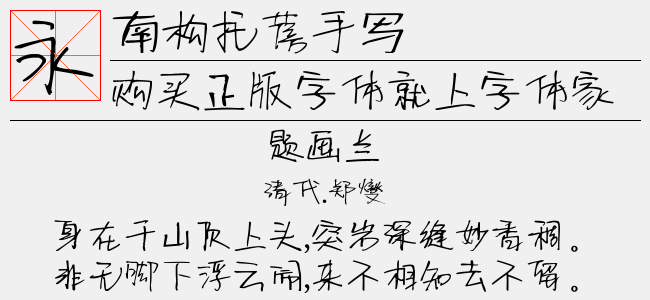 永
南构托蓦手写
购买正版字体就上字体家
题画兰
清代.郑燮
身在千山顶上头,突岩深缝妙香稠。
非无脚下浮云闹,来不相知去不留。